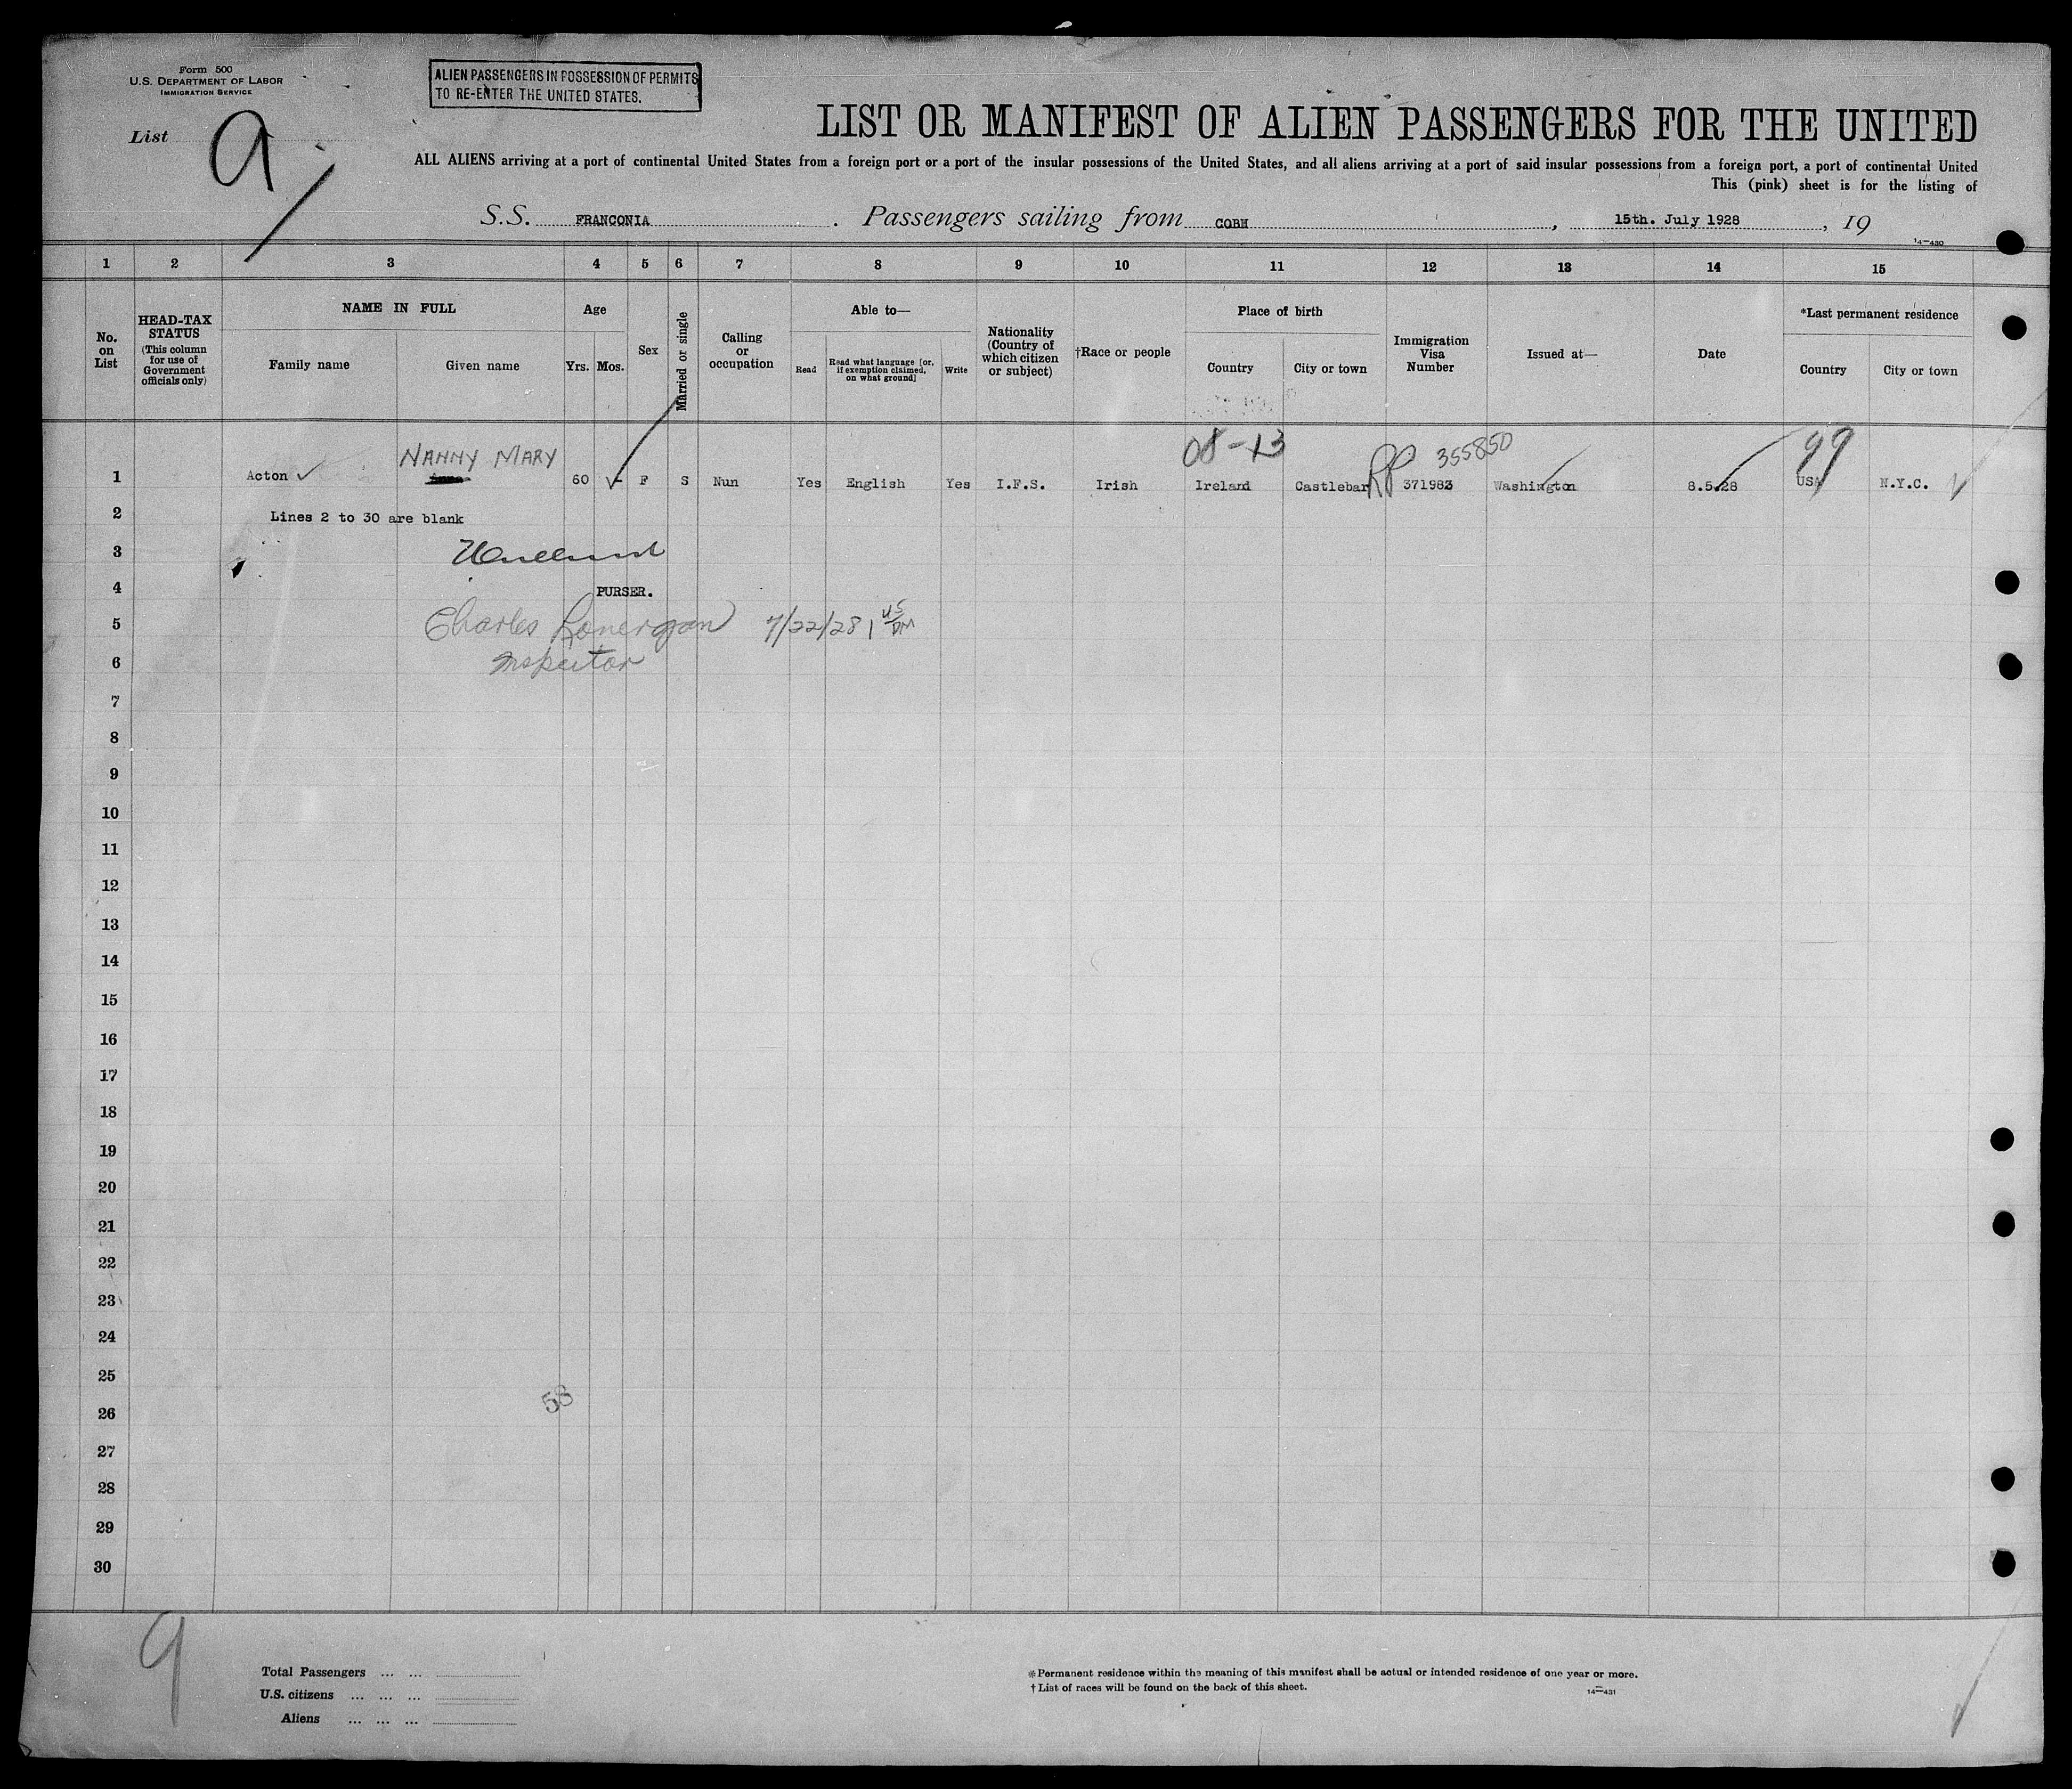 Form 500
U.S. DEPARTMENT OF LABOR
IMMIGRATION SERVICE
ALIEN PASSENGERS IN POSSESSION OF PERMITS
TO RE-ENTER THE UNITED STATES.
List 9
LIST OR MANIFEST OF ALIEN PASSENGERS FOR THE UNITED
ALL ALIENS arriving at a port of continental United States from a foreign port or a port of the insular possessions of the United States, and all aliens arriving at a port of said insular possessions from a foreign port, a port of continental United
This (pink) sheet is for the listing of
S.S. FRANCONIA. Passengers sailing from COBH, 15th. July 1928, 19
14—430
1 2 3 4 5 6 7 8 9 10 11 12 13 14 15
No. on List
HEAD-TAX STATUS (This column for use of Government officials only)
NAME IN FULL
Family name Given name
Age
Yrs. Mos.
Sex
Married or single
Calling or occupation
Able to—
Read Read what language [or, if exemption claimed, on what ground] Write
Nationality (Country of which citizen or subject)
†Race or people
Place of birth
Country City or town
Immigration Visa Number
Issued at—
Date
*Last permanent residence
Country City or town
NANNY MARY 08-13 RP 355850 99
1 Acton 60 - F S Nun Yes English Yes I.F.S. Irish Ireland Castlebar 371983 Washington 8.5.28 USA N.Y.C.
2 Lines 2 to 30 are blank
3
4 PURSER.
5 Charles Lonergan 7/22/28 1 45 PM
6 Inspector
7
8
9
10
11
12
13
14
15
16
17
18
19
20
21
22
23
24
25
58
26
27
28
29
30
9
Total Passengers ... ...
U.S. citizens ... ... ...
Aliens ... ... ...
*Permanent residence within the meaning of this manifest shall be actual or intended residence of one year or more.
†List of races will be found on the back of this sheet.
14—431